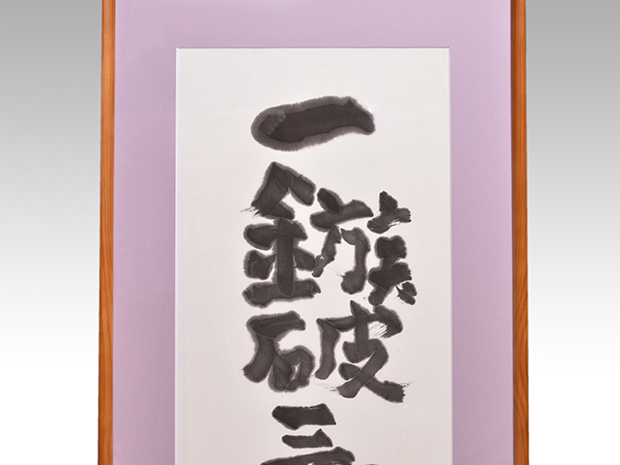 一鏃破三